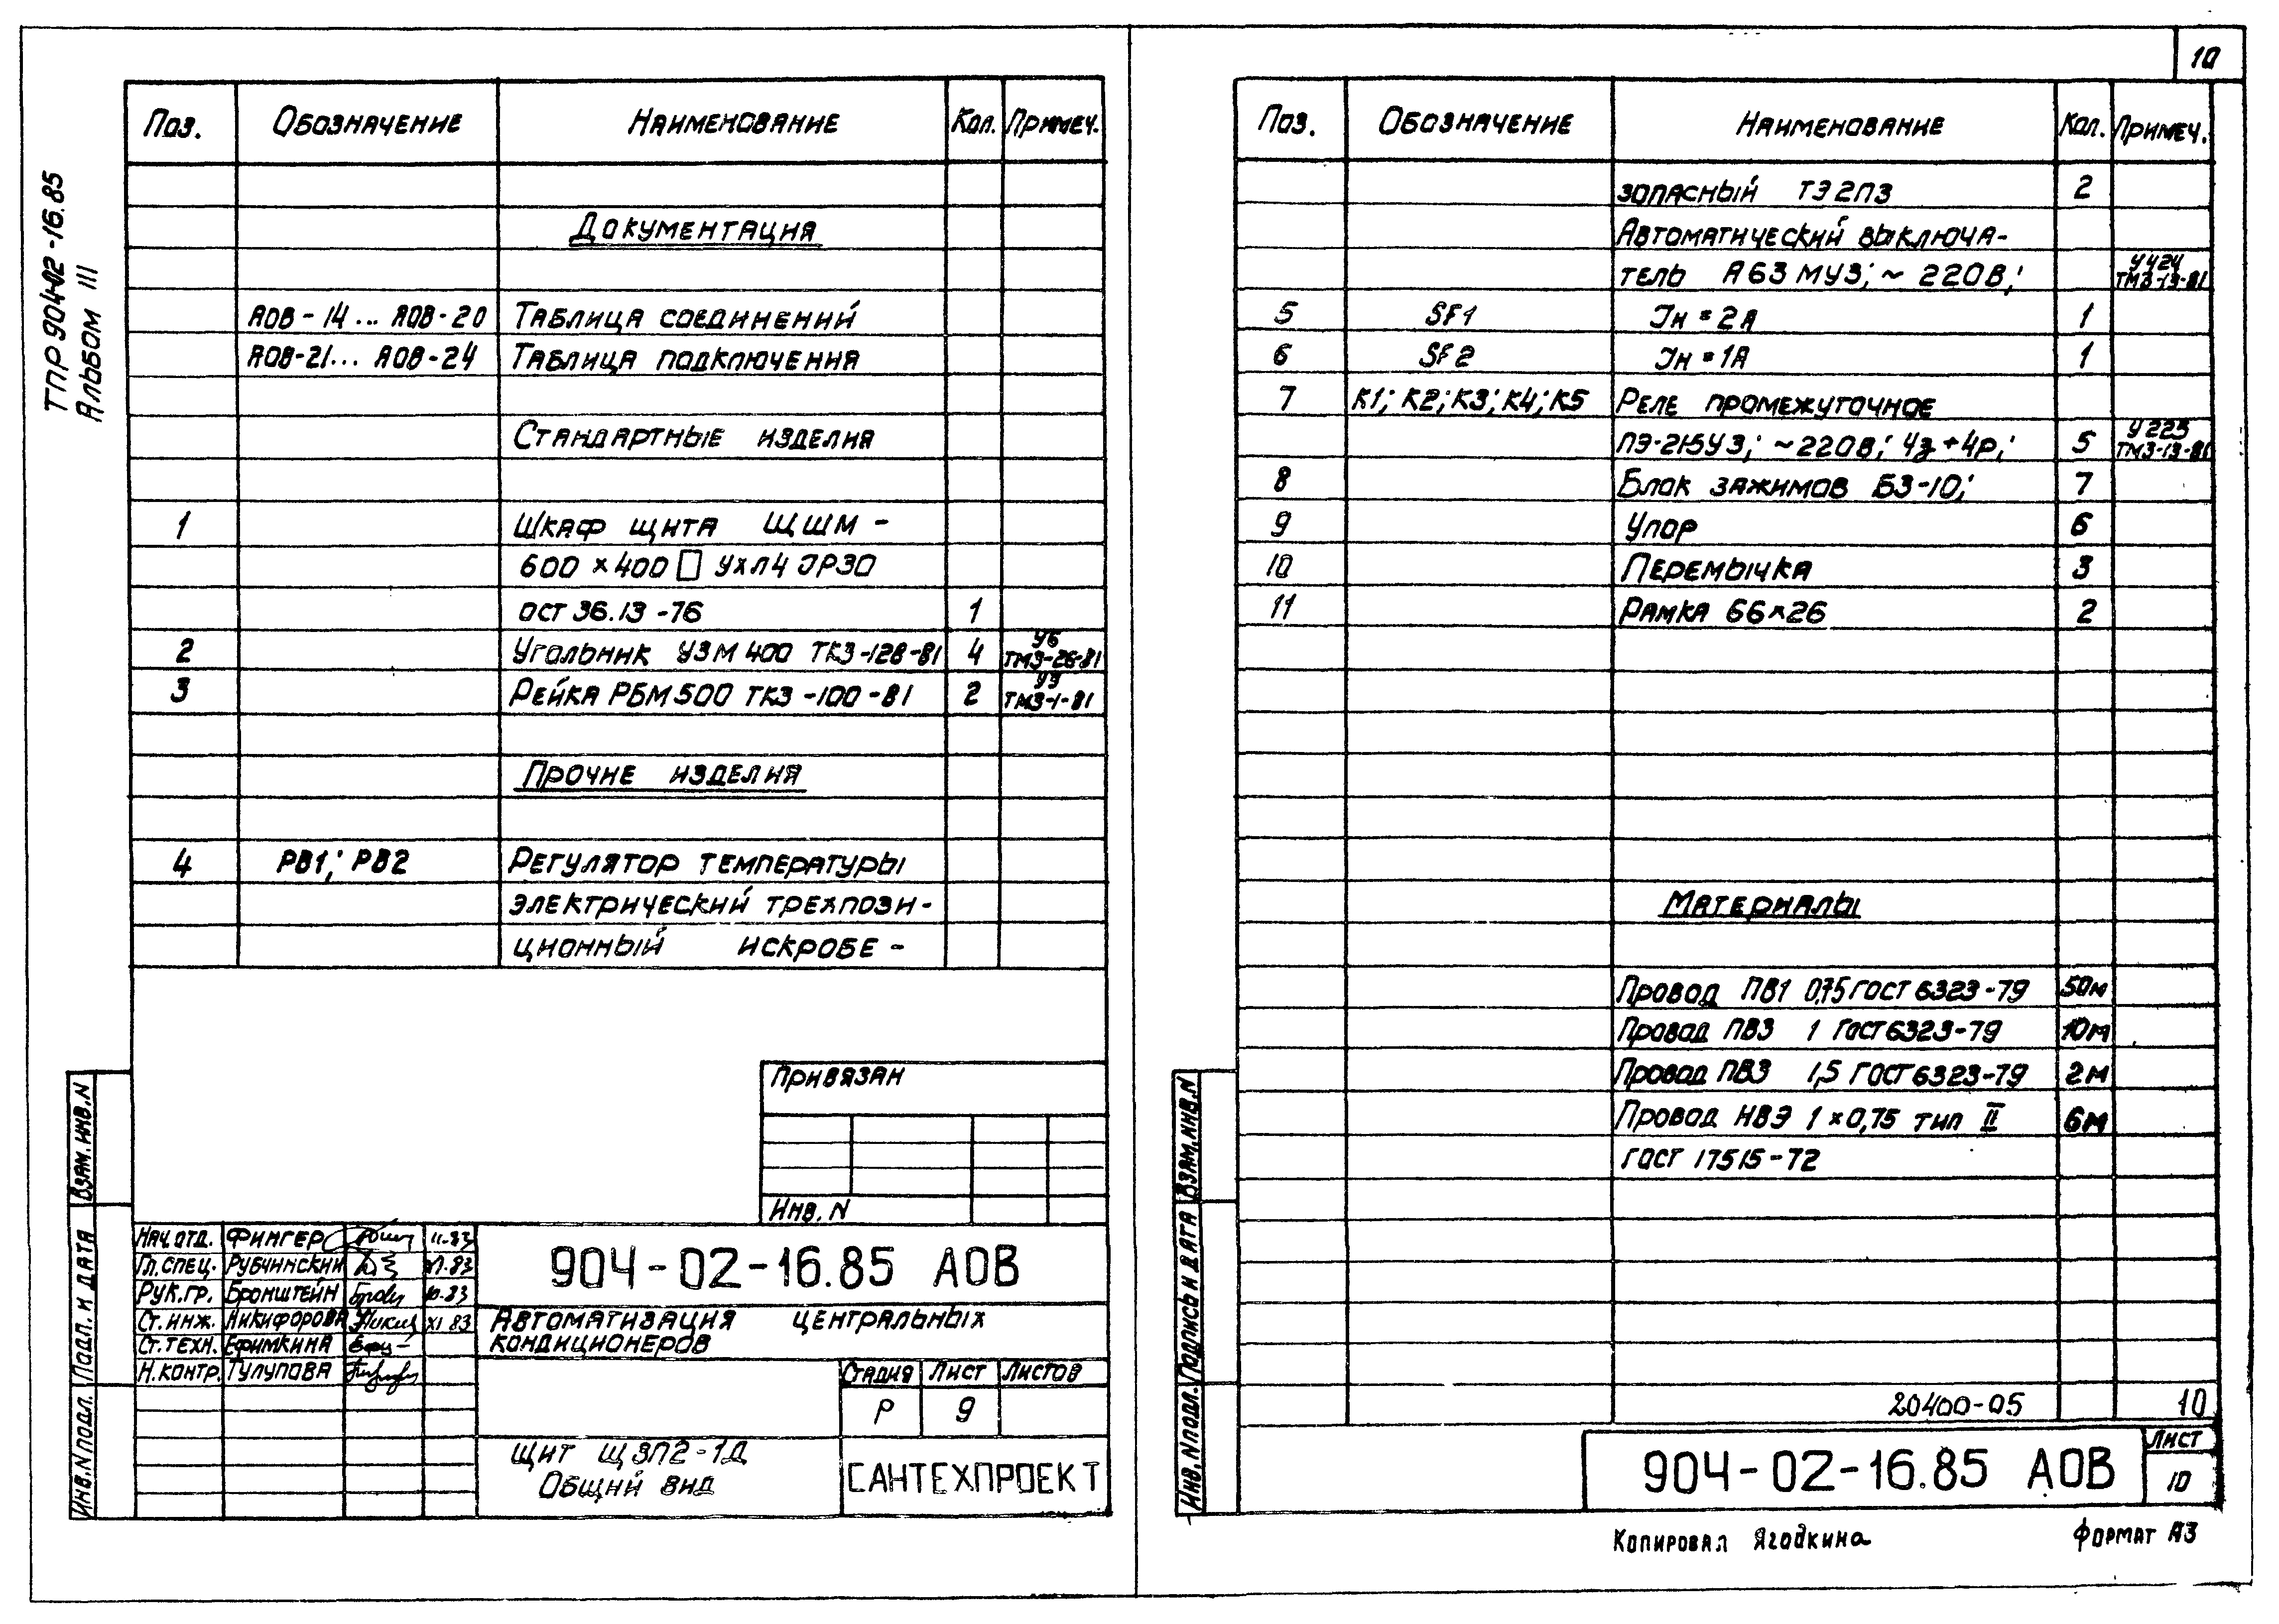 10
ТПР 904-02-16.85
Альбом III
Поз. Обозначение Наименование Кол. Примеч.
Документация
АОВ-14... АОВ-20 Таблица соединений
АОВ-21... АОВ-24 Таблица подключения
Стандартные изделия
1 Шкаф щита ЩШМ-
600×400 □ УХЛ4 IP30
ОСТ 36.13-76 1
2 Угольник УЗМ 400 ТК3-128-81 4 У6 ТМ3-26-81
3 Рейка РБМ 500 ТК3-100-81 2 У3 ТМ3-1-81
Прочие изделия
4 РВ1; РВ2 Регулятор температуры
электрический трехпози-
ционный искробе-
Привязан
Инв. N
Нач. отд. Фингер 11.83
Гл. спец. Рубчинский
Рук. гр. Бронштейн
Ст. инж. Никифорова XI 83
Ст. техн. Ефимкина
Н. контр. Тулупова
904-02-16.85 АОВ
Автоматизация центральных
кондиционеров
Стадия Лист Листов
Р 9
Щит ЩЗП2-1Д
Общий вид
САНТЕХПРОЕКТ
Взам. инв. N
Подп. и дата
Инв. N подл.
Поз. Обозначение Наименование Кол. Примеч.
зопасный ТЭ2П3 2
Автоматический выключа-
тель А63 МУ3; ~ 220В; У424 ТМ3-13-81
5 SF1 Iн = 2А 1
6 SF2 Iн = 1А 1
7 К1; К2; К3; К4; К5 Реле промежуточное
ПЭ-21543; ~220В; 4з + 4р; 5 У223 ТМ3-13-81
8 Блок зажимов БЗ-10; 7
9 Упор 6
10 Перемычка 3
11 Рамка 66×26 2
Материалы
Провод ПВ1 0,75 ГОСТ 6323-79 50м
Провод ПВ3 1 ГОСТ 6323-79 10м
Провод ПВ3 1,5 ГОСТ 6323-79 2м
Провод НВЭ 1×0,75 тип II 6м
ГОСТ 17515-72
20400-05 10
904-02-16.85 АОВ
Лист
10
Взам. инв. N
Подпись и дата
Инв. N подл.
Копировал Ягодкина Формат А3